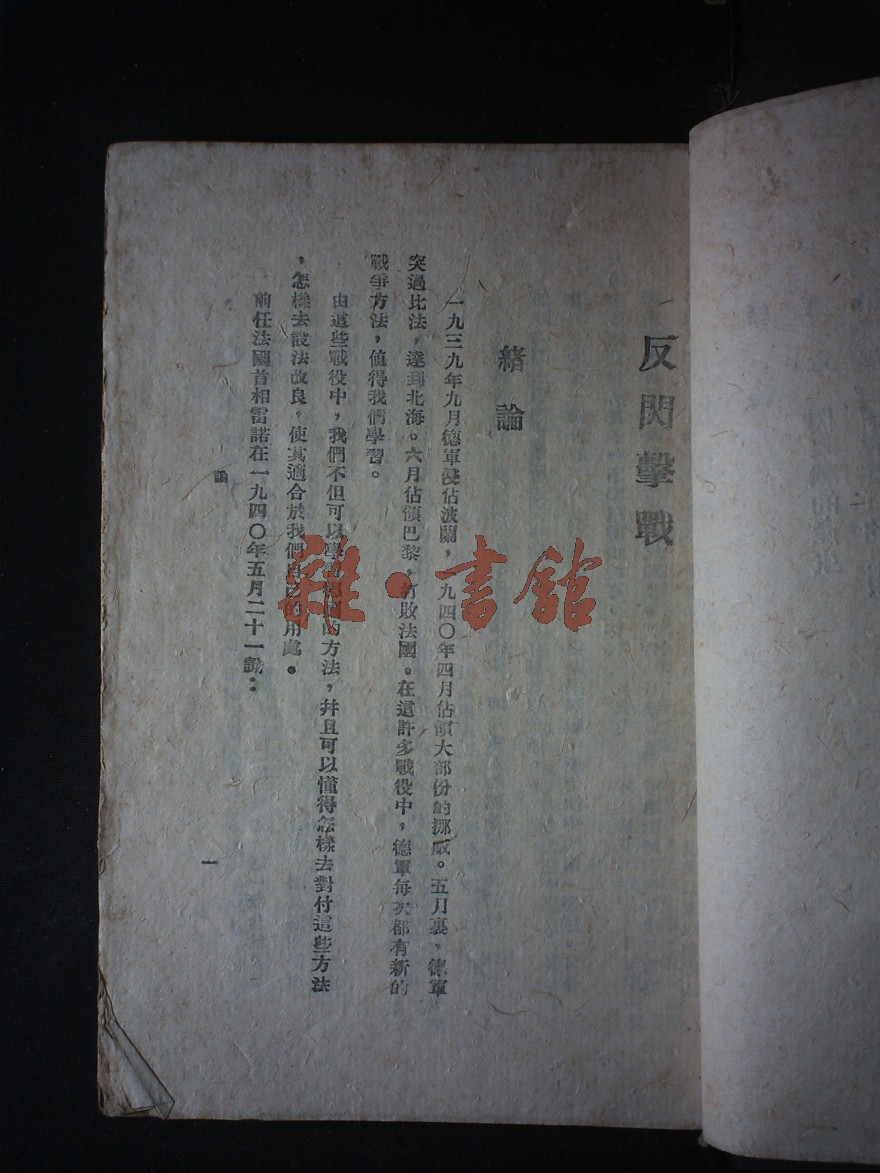 反閃擊戰
緒論
一九三九年九月德軍侵佔波蘭，一九四〇年四月佔領大部份的挪威。五月裏，德軍
突過比法，達到北海。六月佔領巴黎，打敗法國。在這許多戰役中，德軍每次都有新的
戰爭方法，值得我們學習。
由這些戰役中，我們不但可以學習德國的方法，幷且可以懂得怎樣去對付這些方法
，怎樣去設法改良，使其適合於我們自己的用處。
前任法國首相雷諾在一九四〇年五月二十一說：
一
雜·書館